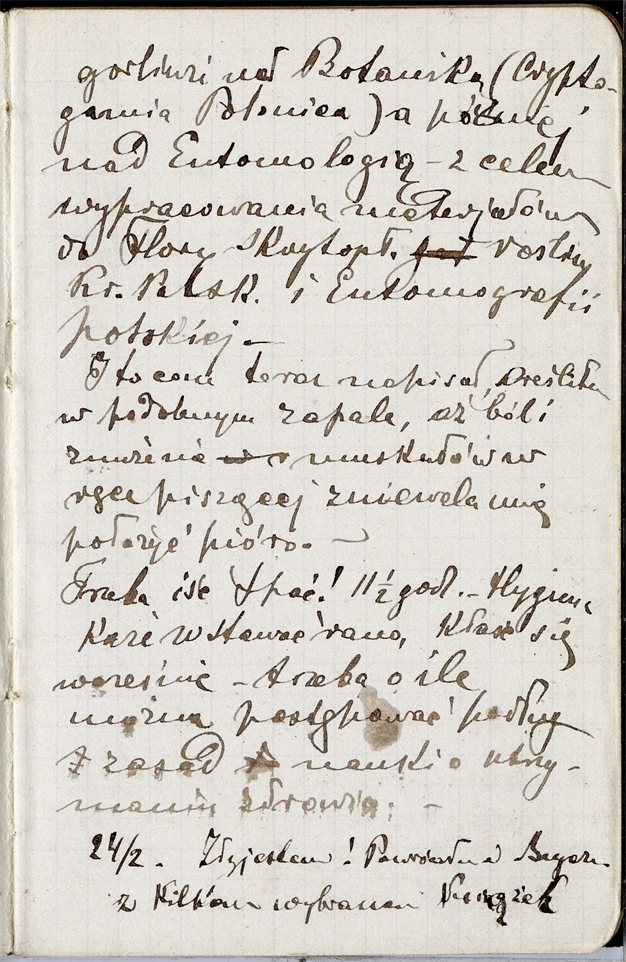 gorliwiej nad Botaniką (Crypto-
gamia Polonica) a później
nad Entomologią – z celem
wypracowania materjałów
do Flory Skrytopł. roślin
Kr. Polsk. i Entomografii
polskiej. –
I to com teraz napisał, kreśliłem
w podobnym zapale, aż ból i
znużenie muskułów w
ręce piszącej zniewala mię
położyć pióro. –
Trzeba iść spać! 11 ½ godz. – Hygiena
każe wstawać rano, kłaść się
wcześnie – trzeba o ile
można postępować podług
zasad nauki o utrzy-
maniu zdrowia. –
24/2. !
z kilkom wybranem książek